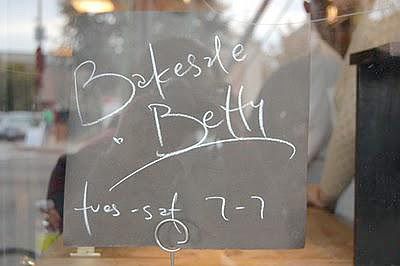 Bakesale
Betty
tues-sat 7-7